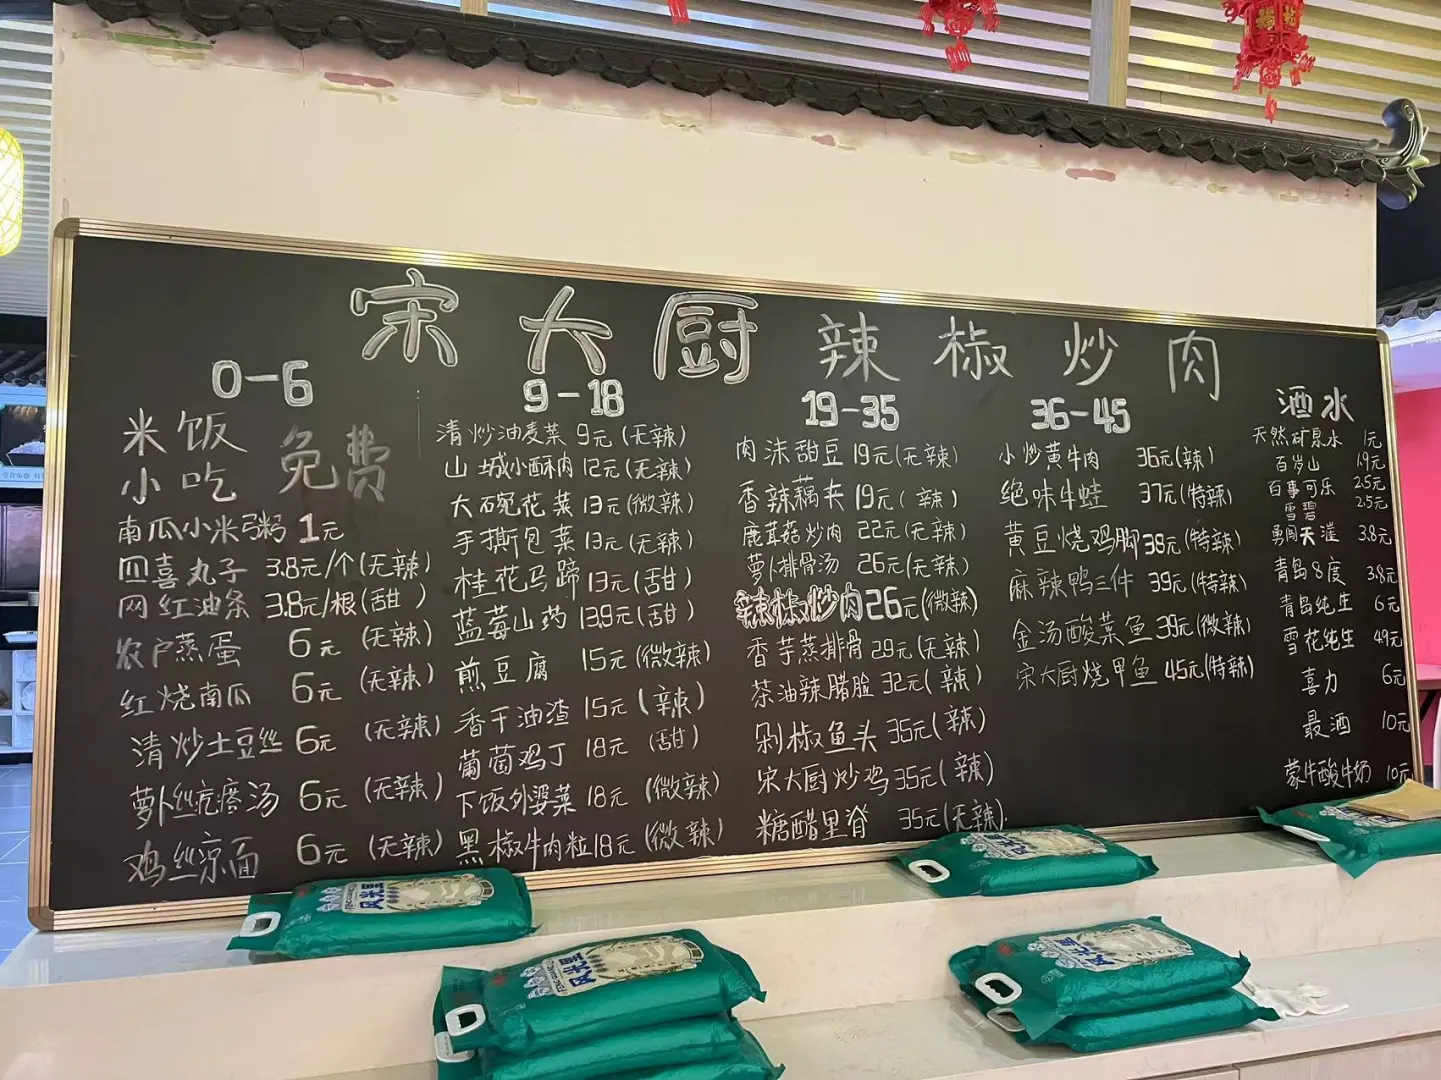 宋大厨辣椒炒肉
0-6
米饭
小吃
免费
南瓜小米粥 1元
四喜丸子 3.8元/个(无辣)
网红油条 3.8元/根(甜)
农户蒸蛋 6元 (无辣)
红烧南瓜 6元 (无辣)
清炒土豆丝 6元 (无辣)
萝卜丝疙瘩汤 6元 (无辣)
鸡丝凉面 6元 (无辣)
9-18
清炒油麦菜 9元(无辣)
山城小酥肉 12元(无辣)
大碗花菜 13元(微辣)
手撕包菜 13元(无辣)
桂花马蹄 13元(甜)
蓝莓山药 13.9元(甜)
煎豆腐 15元(微辣)
香干油渣 15元(辣)
葡萄鸡丁 18元 (甜)
下饭外婆菜 18元 (微辣)
黑椒牛肉粒 18元 (微辣)
19-35
肉沫甜豆 19元(无辣)
香辣藕夹 19元(辣)
鹿茸菇炒肉 22元(无辣)
萝卜排骨汤 26元(无辣)
辣椒炒肉 26元(微辣)
香芋蒸排骨 29元(无辣)
茶油辣腊脸 32元(辣)
剁椒鱼头 35元(辣)
宋大厨炒鸡 35元(辣)
糖醋里脊 35元(无辣)
36-45
小炒黄牛肉 36元(辣)
绝味牛蛙 37元(特辣)
黄豆烧鸡脚 38元(特辣)
麻辣鸭三件 39元(特辣)
金汤酸菜鱼 39元(微辣)
宋大厨烧甲鱼 45元(特辣)
酒水
天然矿泉水 1元
百岁山 1.9元
百事可乐 2.5元
雪碧 2.5元
勇闯天涯 3.8元
青岛8度 3.8元
青岛纯生 6元
雪花纯生 4.9元
喜力 6元
最酒 10元
蒙牛酸牛奶 10元
风光里
风光里
风光里